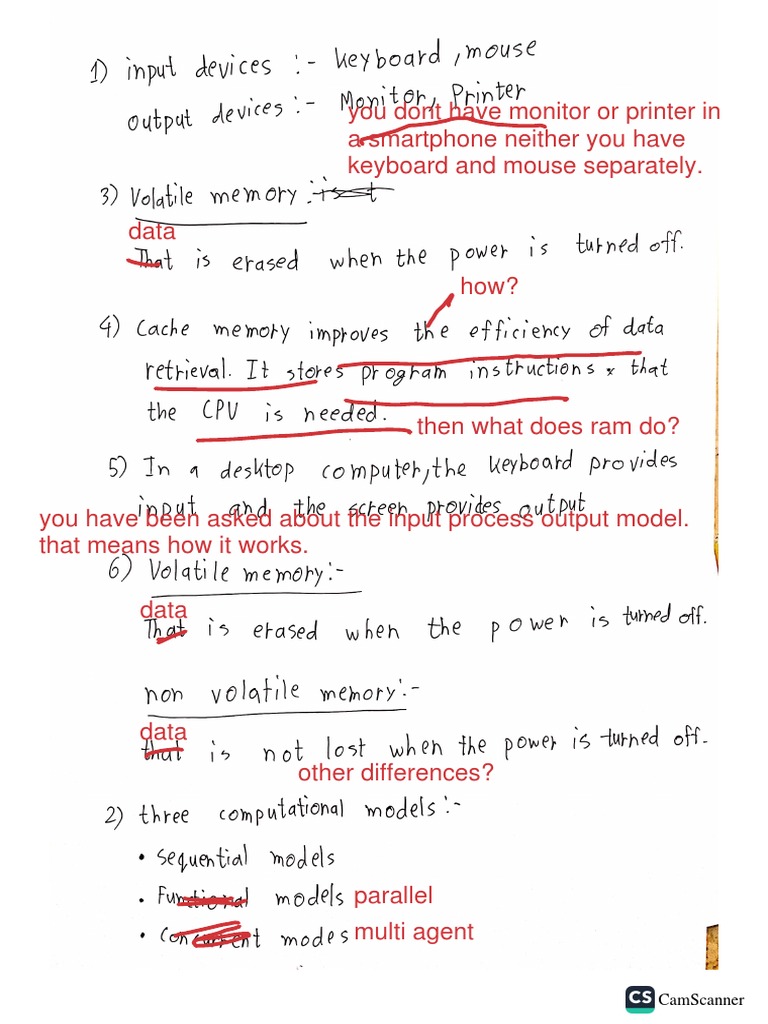 1) input devices :- keyboard, mouse
output devices :- Monitor, Printer
you dont have monitor or printer in
a smartphone neither you have
keyboard and mouse separately.
3) Volatile memory :-
data
That is erased when the power is turned off.
how?
4) Cache memory improves the efficiency of data
retrieval. It stores program instructions that
the CPU is needed.
then what does ram do?
5) In a desktop computer, the keyboard provides
input and the screen provides output
you have been asked about the input process output model.
that means how it works.
6) Volatile memory:-
data
That is erased when the power is turned off.
non volatile memory:-
data
that is not lost when the power is turned off.
other differences?
2) three computational models:-
• Sequential models
• Functional models parallel
• Concurrent modes multi agent
CS CamScanner